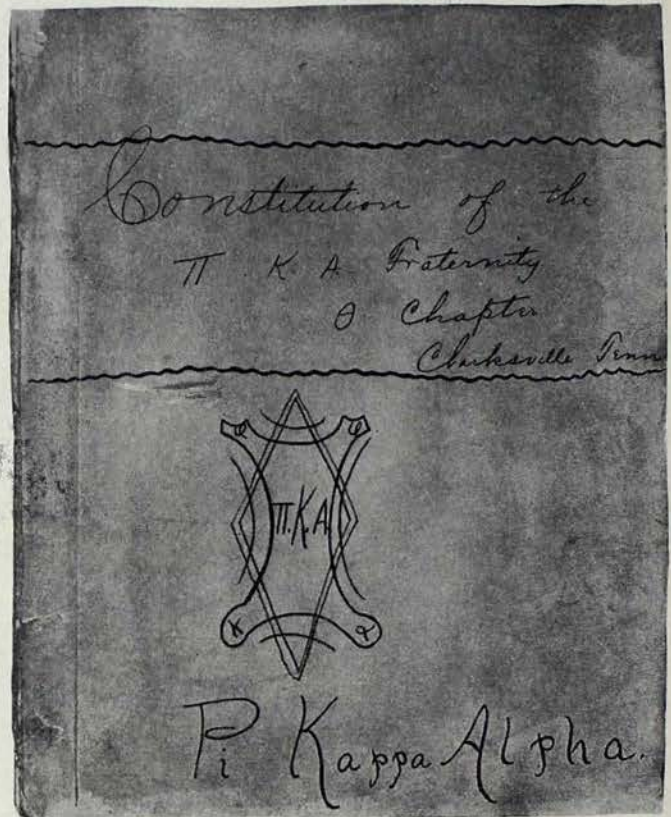 Constitution of the
Π K. A. Fraternity
θ Chapter
Clarksville Tenn
Φ Φ
Π.K.A.
K α
Pi Kappa Alpha.